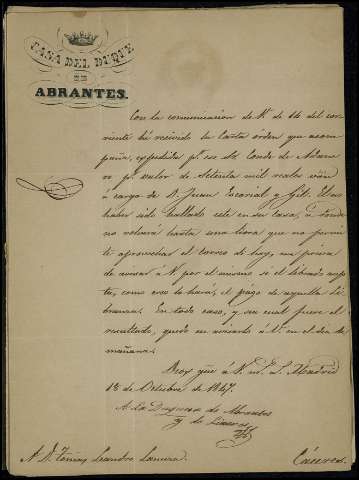 CASA DEL DUQUE
DE
ABRANTES.
Con la comunicacion de V. de 14 del cor
riente hé recivido la carta orden que acom
paña, expedida pr. el Conde de
pr. valor de setenta mil reales vn
á cargo de D. Juan Escorial y Gil. El no
haber sido hallado este en su casa, á donde
no volverá hasta una hora que no permi
te aprovechar el correo de hoy, me priva
de avisar á V. por el mismo si el librado
como creo lo hará, el pago de aquella li
branza. En todo caso, y sea cual fuere el
resultado, quedo en avisarlo á V. en el dia de
mañana.
Madrid
18 de Octubre de 1847.
A la Duquesa de Abrantes
y de Linares
A D. Tomas Leandro
Cáceres